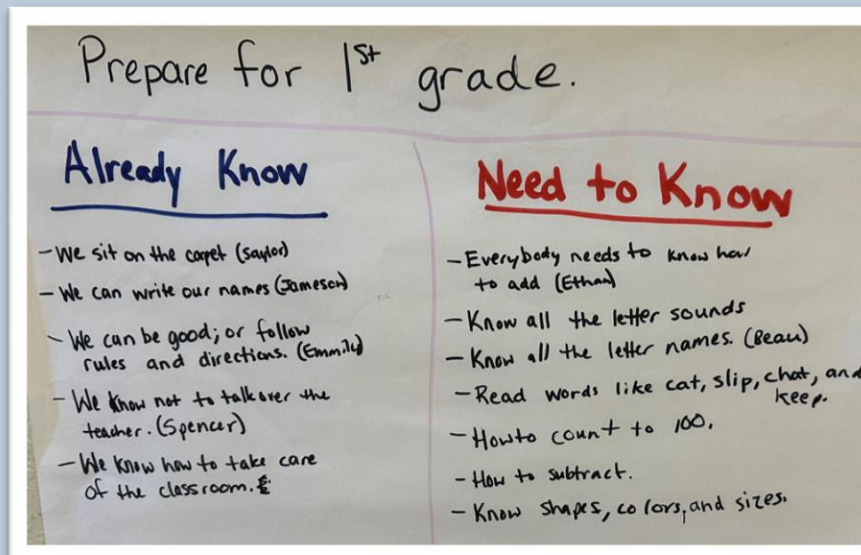 Prepare for 1st grade.
Already Know
- We sit on the carpet (Saylor)
- We can write our names (Jameson)
- We can be good; or follow
rules and directions. (Emmily)
- We know not to talk over the
teacher. (Spencer)
- We know how to take care
of the classroom.
Need to Know
- Everybody needs to know how
to add (Ethan)
- Know all the letter sounds
- Know all the letter names. (Beau)
- Read words like cat, slip, chat, and
keep.
- How to count to 100.
- How to subtract.
- Know shapes, colors, and sizes.